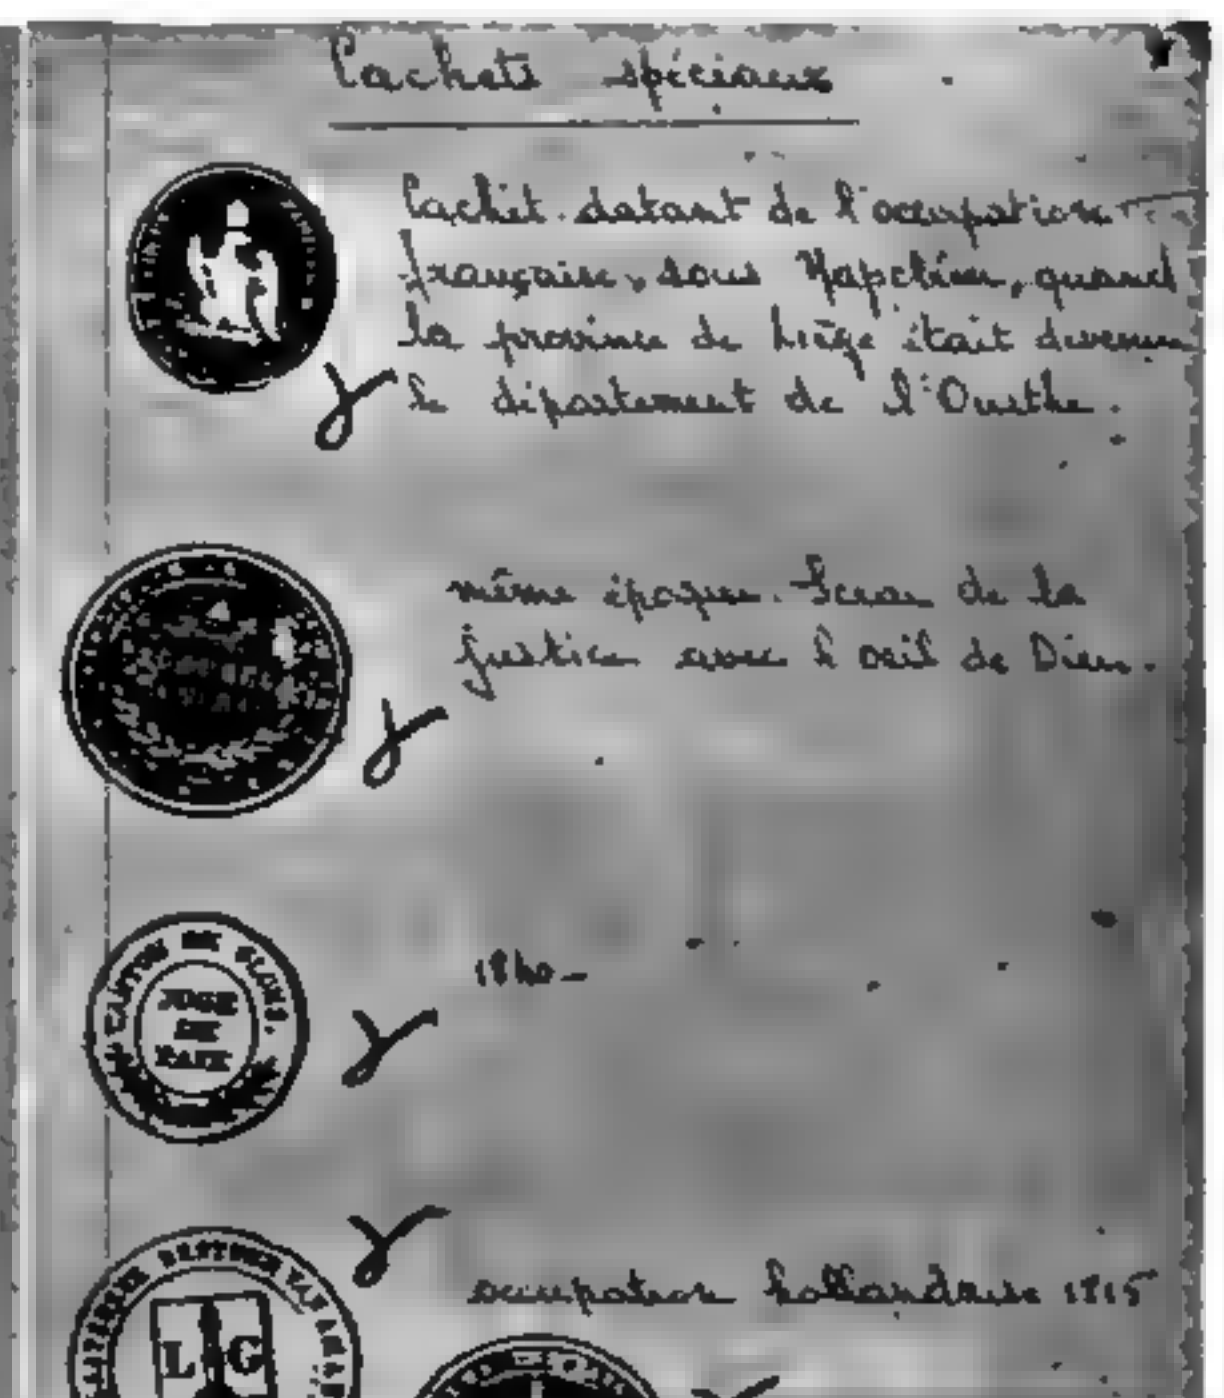 Cachets spéciaux
Cachet datant de l'occupation
française, sous Napoléon, quand
la province de Liège était devenue
le département de l'Ourthe.
même époque. Sceau de la
justice avec l'oeil de Dieu.
CANTON DE GLONS.
JUGE
DE
PAIX
1840-
BESTUUR VAN
L G
occupation hollandaise 1815